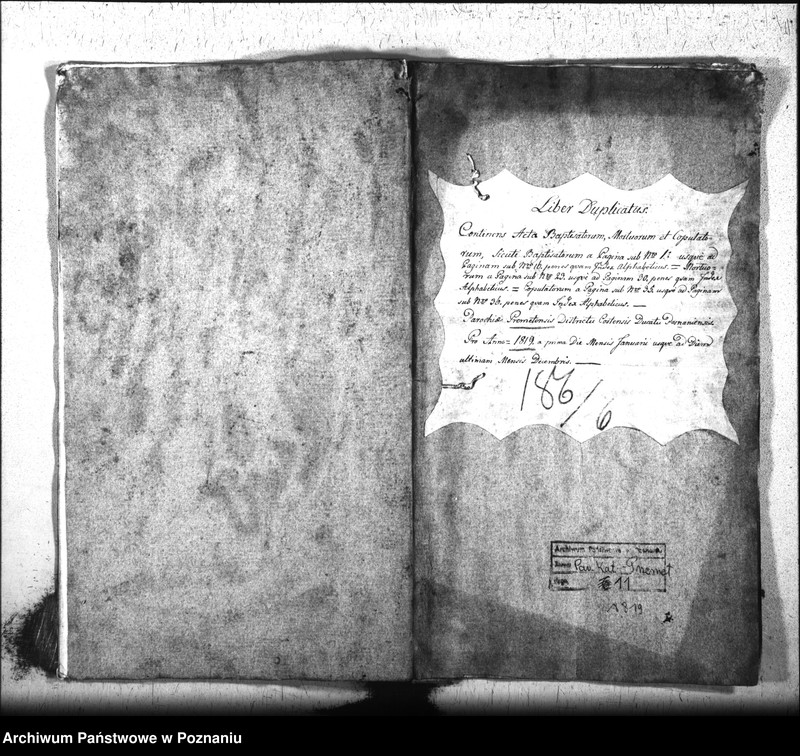 Liber Duplicatus.
Continens Acta Baptisatorum, Mortuorum et Copulato-
rum, Sicuti Baptisatorum a Pagina sub Nro 1. usque ad
Paginam sub Nro 16. penes quam Index Alphabeticus. = Mortuo-
rum a Pagina sub Nro 23. usque ad Paginam 30, penes quam Index
Alphabeticus. = Copulatorum a Pagina sub Nro 35. usque ad Paginam
sub Nro 36. penes quam Index Alphabeticus. —
Parochiæ Premetensis Districtus Costensis Ducatus Posnaniensis
Pro Anno = 1819. a prima Die Mensis Januarii usque ad Diem
ultimam Mensis Decembris. —
186/6
Archiwum Państwowe w Poznaniu
Par. Kat. Przemęt
11
1819
Archiwum Państwowe w Poznaniu